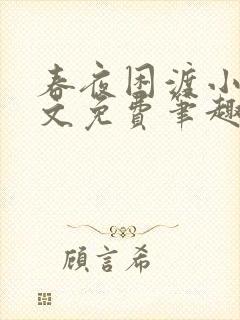 春夜困渡小
文免费笔趣
顾言希